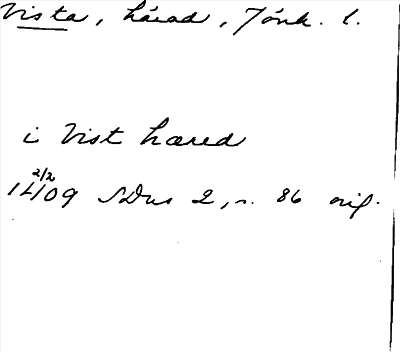 Vista, härad, Jönk. l.
i Vist hæred
2/2
1409 SDns 2, n. 86 orig.